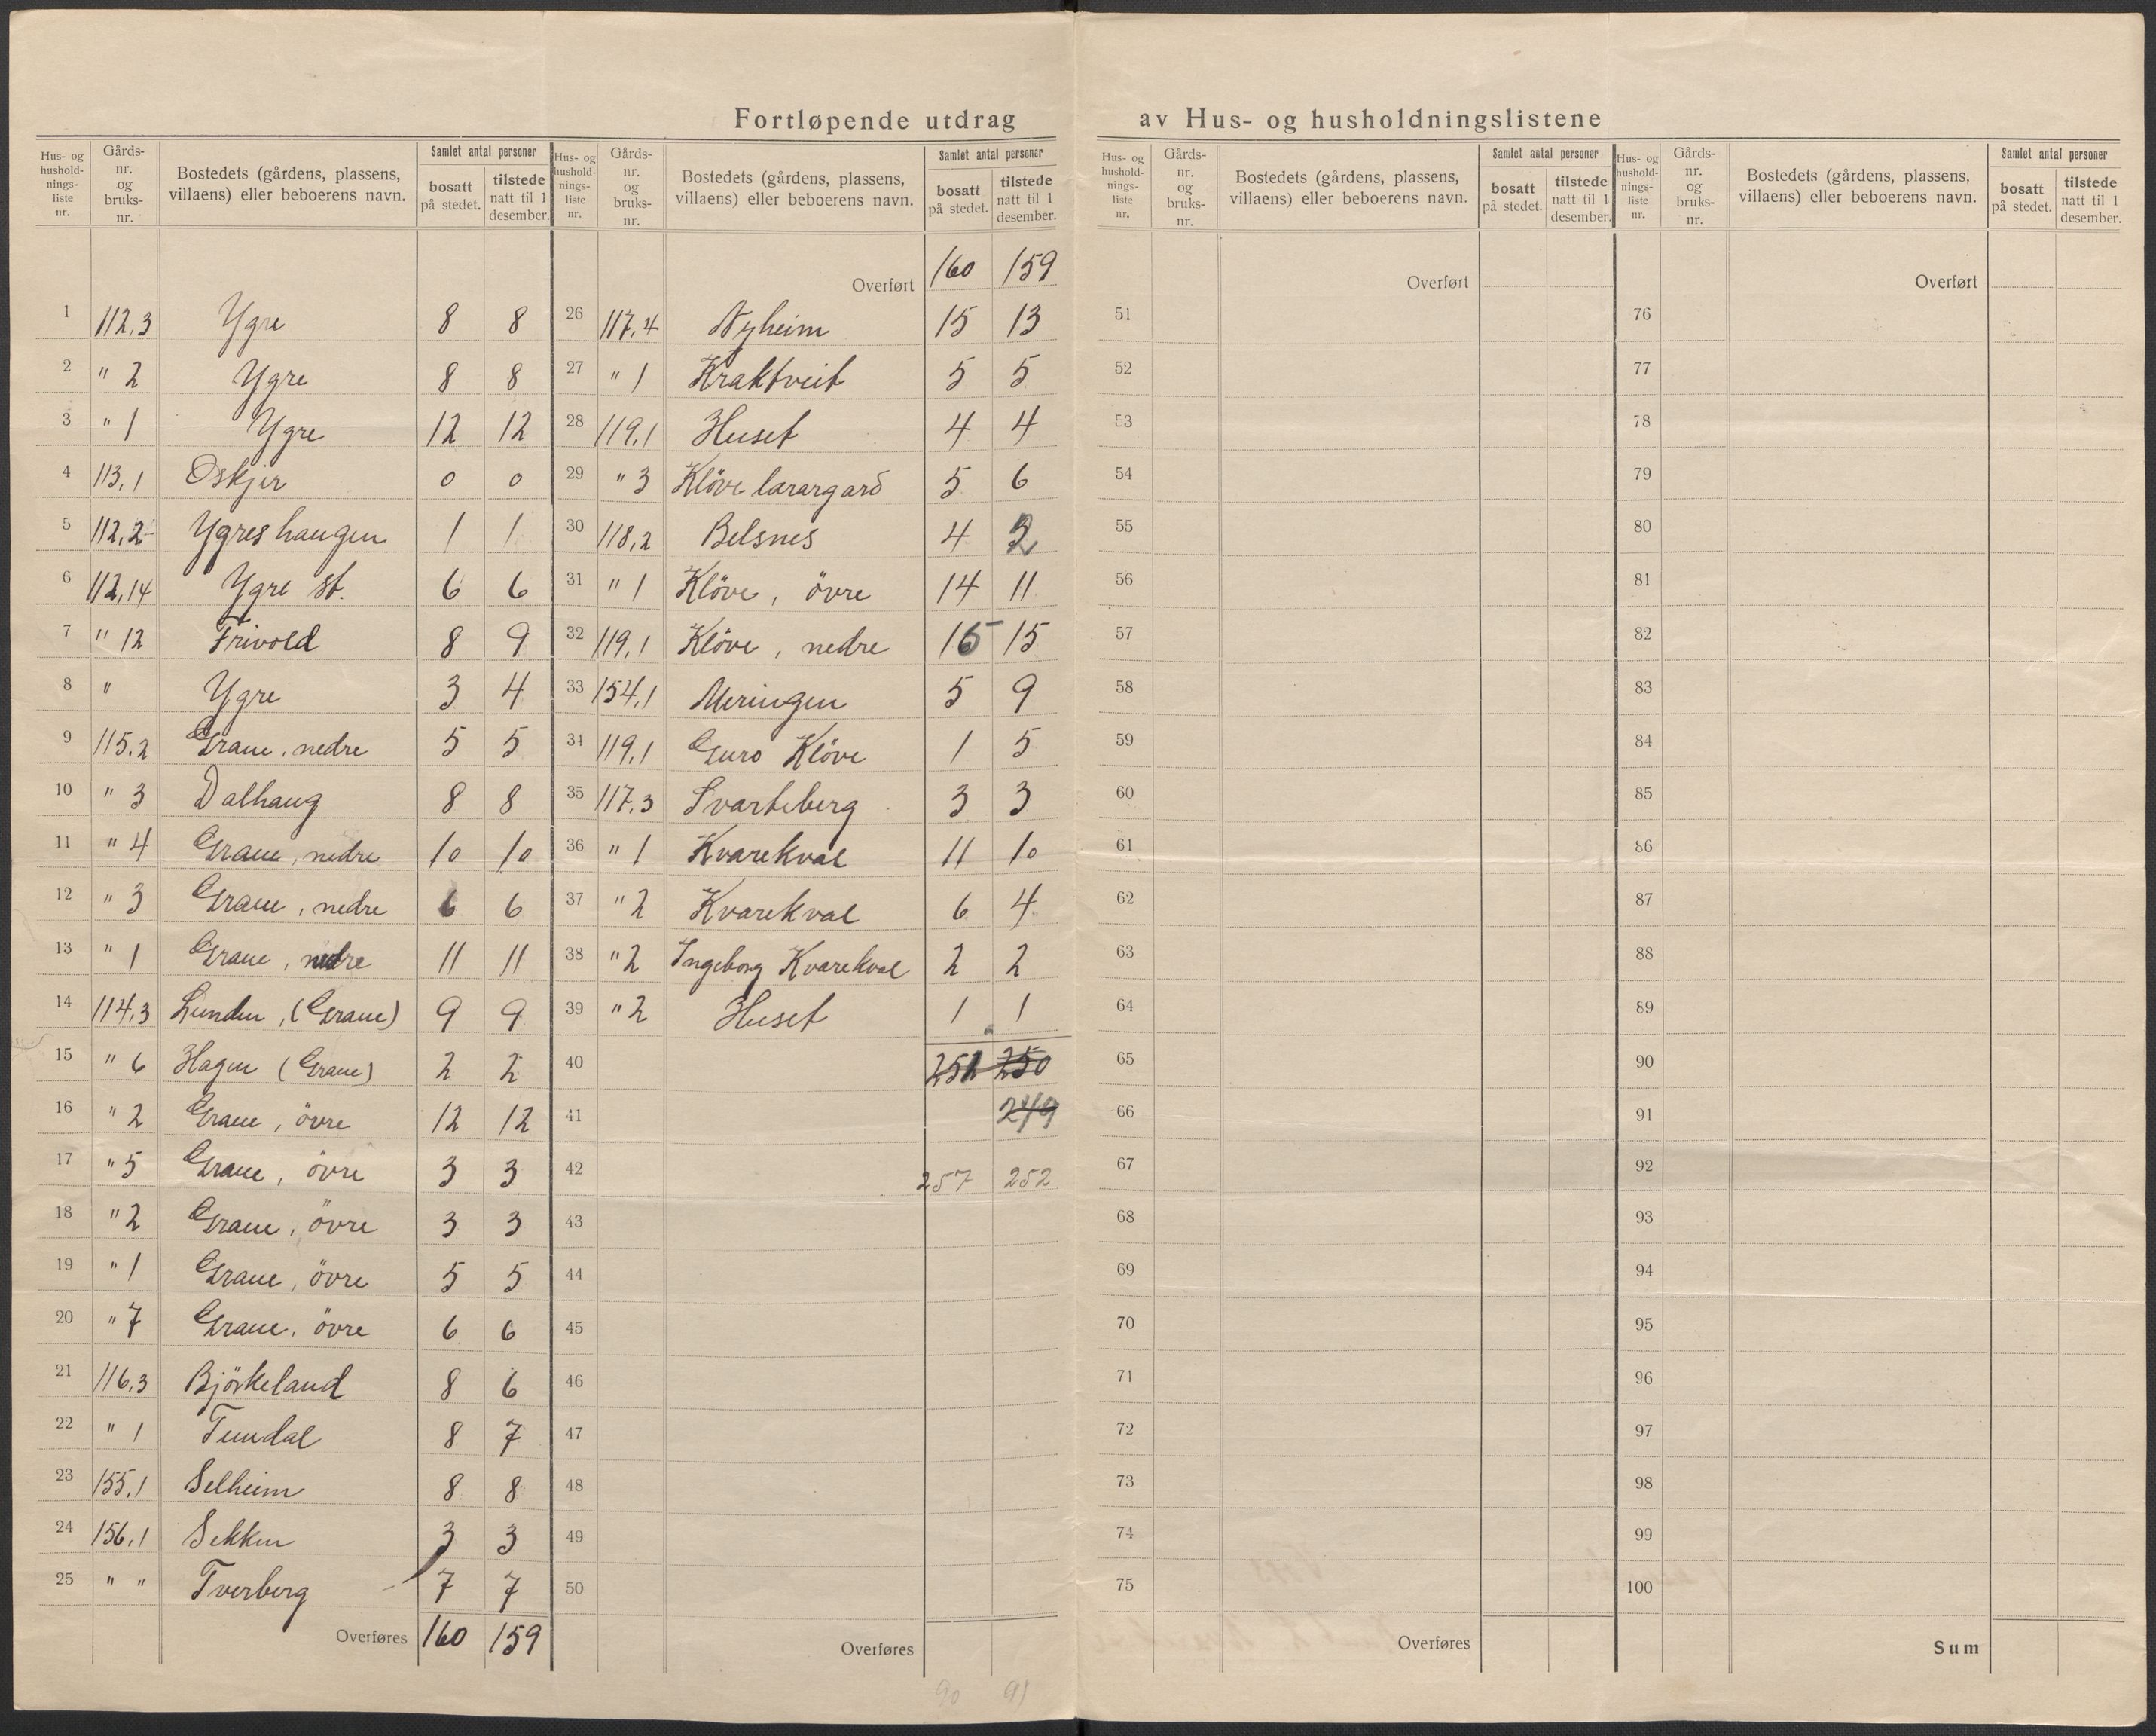 Fortløpende utdrag av Hus- og husholdningslistene
Hus- og hushold-nings-liste nr. Gårds-nr. og bruks-nr. Bostedets (gårdens, plassens, villaens) eller beboerens navn. Samlet antal personer bosatt på stedet. tilstede natt til 1 desember.
1 112,3 Ygre 8 8
2 " 2 Ygre 8 8
3 " 1 Ygre 12 12
4 113,1 Oskjer 0 0
5 112,2 Ygreshaugen 1 1
6 112,14 Ygre st. 6 6
7 " 12 Frivold 8 9
8 " Ygre 3 4
9 115,2 Graue, nedre 5 5
10 " 3 Dalhaug 8 8
11 " 4 Graue, nedre 10 10
12 " 3 Graue, nedre 6 6
13 " 1 Graue, nedre 11 11
14 114,3 Lunden, (Graue) 9 9
15 " 6 Hagen (Graue) 2 2
16 " 2 Graue, övre 12 12
17 " 5 Graue, övre 3 3
18 " 2 Graue, övre 3 3
19 " 1 Graue, övre 5 5
20 " 7 Graue, övre 6 6
21 116,3 Björkeland 8 6
22 " 1 Tundal 8 7
23 155,1 Selheim 8 8
24 156,1 Sekken 3 3
25 " " Tverberg 7 7
Overføres 160 159
Hus- og hushold-nings-liste nr. Gårds-nr. og bruks-nr. Bostedets (gårdens, plassens, villaens) eller beboerens navn. Samlet antal personer bosatt på stedet. tilstede natt til 1 desember.
Overført 160 159
26 117,4 Nyheim 15 13
27 " 1 Kraktveit 5 5
28 119,1 Huset 4 4
29 " 3 Klöve larargard 5 6
30 118,2 Belsnes 4
31 " 1 Klöve, övre 14 11
32 119,1 Klöve, nedre 16 15
33 154,1 Meringen 5 9
34 119,1 Guro Klöve 1 5
35 117,3 Svarteberg 3 3
36 " 1 Kvarekval 11 10
37 " 2 Kvarekval 6 4
38 " 2 Ingeborg Kvarekval 2 2
39 " 2 Huset 1 1
40 252 250
41 249
42 257 252
43
44
45
46
47
48
49
50
Overføres
90 91
Hus- og hushold-nings-liste nr. Gårds-nr. og bruks-nr. Bostedets (gårdens, plassens, villaens) eller beboerens navn. Samlet antal personer bosatt på stedet. tilstede natt til 1 desember.
Overført
51
52
53
54
55
56
57
58
59
60
61
62
63
64
65
66
67
68
69
70
71
72
73
74
75
Overføres
Hus- og hushold-nings-liste nr. Gårds-nr. og bruks-nr. Bostedets (gårdens, plassens, villaens) eller beboerens navn. Samlet antal personer bosatt på stedet. tilstede natt til 1 desember.
Overført
76
77
78
79
80
81
82
83
84
85
86
87
88
89
90
91
92
93
94
95
96
97
98
99
100
Sum